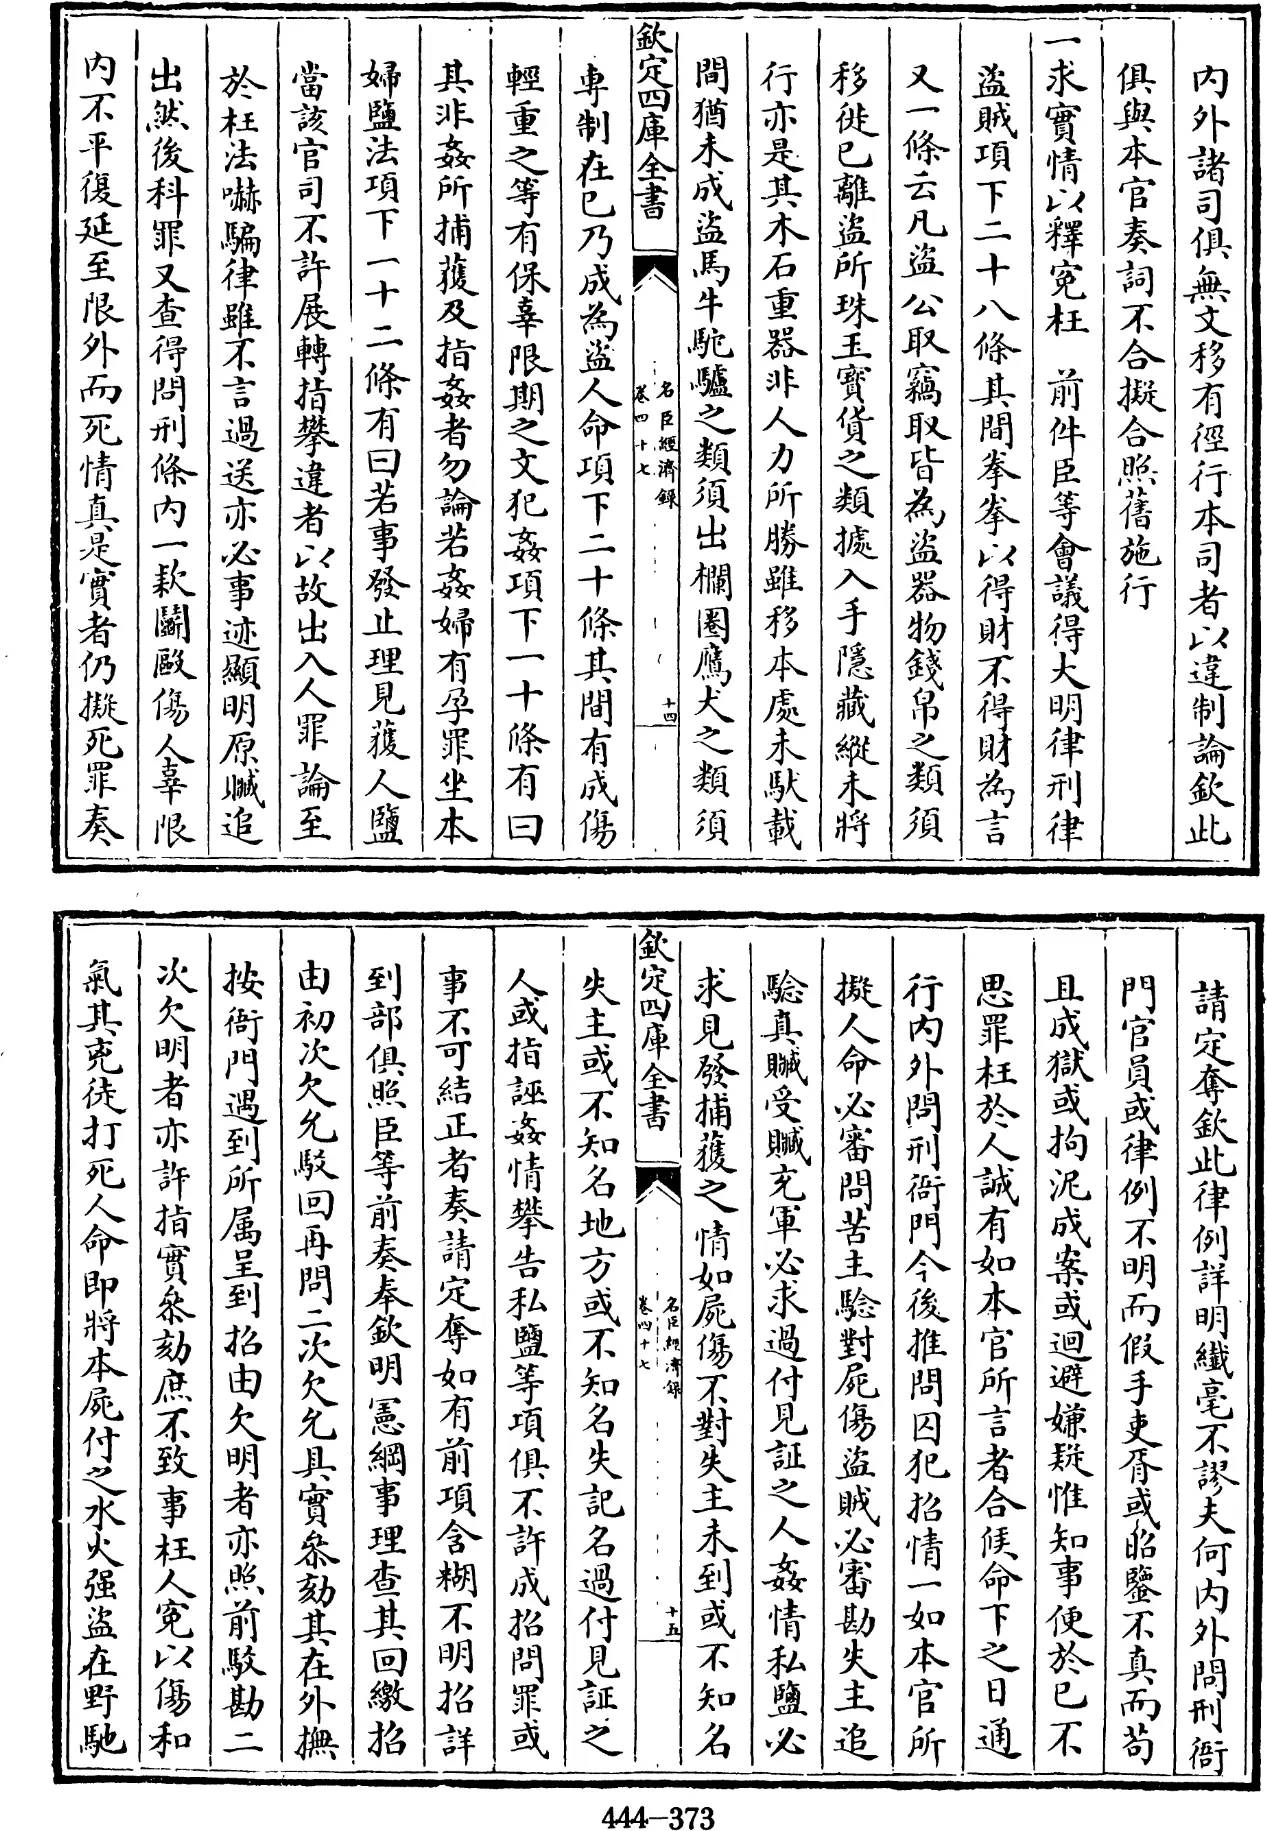 內外諸司俱無文移有徑行本司者以違制論欽此
俱與本官奏詞不合擬合照舊施行
一求實情以釋寃枉　前件臣等會議得大明律刑律
盜賊項下二十八條其間拳拳以得財不得財為言
又一條云凡盜公取竊取皆為盜器物錢帛之類須
移徙已離盜所珠玉寳貨之類據入手隱藏縱未將
行亦是其木石重器非人力所勝雖移本處未馱載
間猶未成盜馬牛駝驢之類須出欄圈鷹犬之類須
欽定四庫全書
名臣經濟錄
卷四十七
十四
專制在已乃成為盜人命項下二十條其間有成傷
輕重之等有保辜限期之文犯姦項下一十條有曰
其非姦所捕獲及指姦者勿論若姦婦有孕罪坐本
婦鹽法項下一十二條有曰若事發止理見獲人鹽
當該官司不許展轉指攀違者以故出入人罪論至
於枉法嚇騙律雖不言過送亦必事迹顯明原贓追
出然後科罪又查得問刑條內一款鬭毆傷人辜限
內不平復延至限外而死情真是實者仍擬死罪奏
請定奪欽此律例詳明纖毫不謬夫何內外問刑衙
門官員或律例不明而假手吏胥或昭鑒不真而苟
且成獄或拘泥成案或迴避嫌疑惟知事便於已不
思罪枉於人誠有如本官所言者合候命下之日通
行內外問刑衙門今後推問囚犯招情一如本官所
擬人命必審問苦主驗對屍傷盜賊必審勘失主追
驗真贓受贓充軍必求過付見証之人姦情私鹽必
求見發捕獲之情如屍傷不對失主未到或不知名
欽定四庫全書
名臣經濟錄
卷四十七
十五
失主或不知名地方或不知名失記名過付見証之
人或指誣姦情攀告私鹽等項俱不許成招問罪或
事不可結正者奏請定奪如有前項含糊不明招詳
到部俱照臣等前奏奉欽明憲綱事理查其回繳招
由初次欠允駁回再問二次欠允具實叅劾其在外撫
按衙門遇到所属呈到招由欠明者亦照前駁勘二
次欠明者亦許指實叅劾庶不致事枉人寃以傷和
氣其兇徒打死人命即將本屍付之水火强盜在野馳
444-373